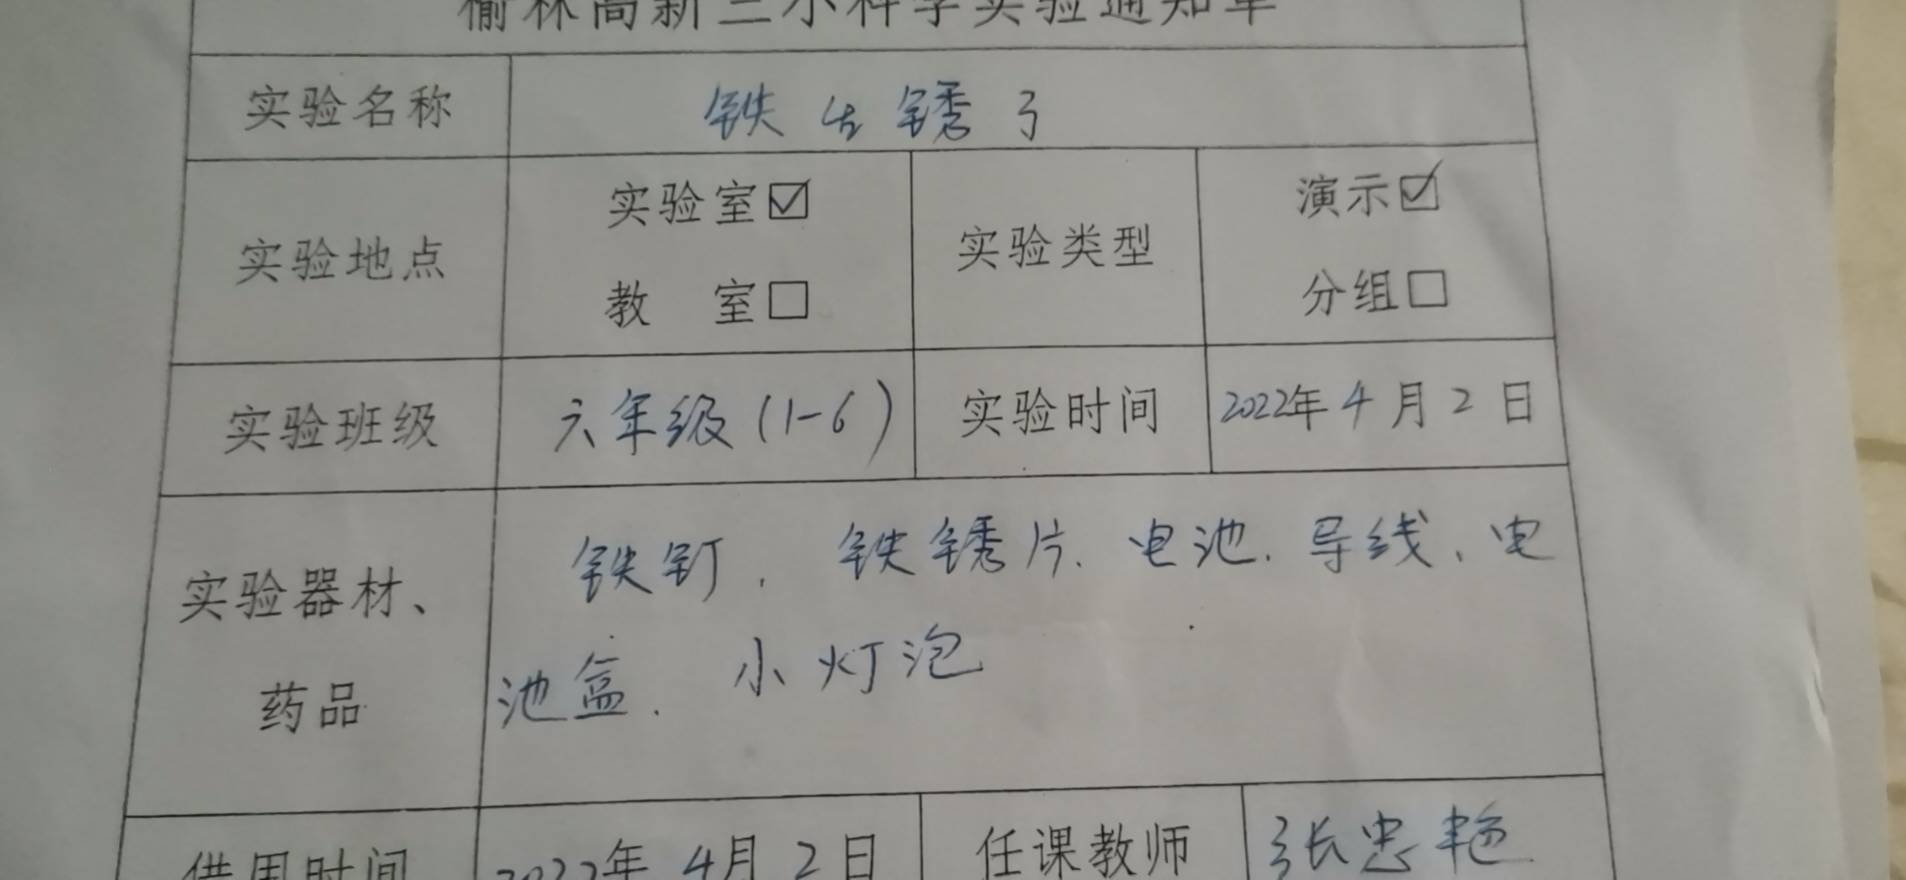 榆林高新三小科学实验通知单
实验名称 铁生锈了
实验室☑ 演示☑
实验地点 实验类型
教 室□ 分组□
实验班级 六年级(1-6) 实验时间 2022年4月2日
实验器材、 铁钉、铁锈片、电池、导线、电
药品 池盒、小灯泡
借用时间 2022年4月2日 任课教师 张忠艳